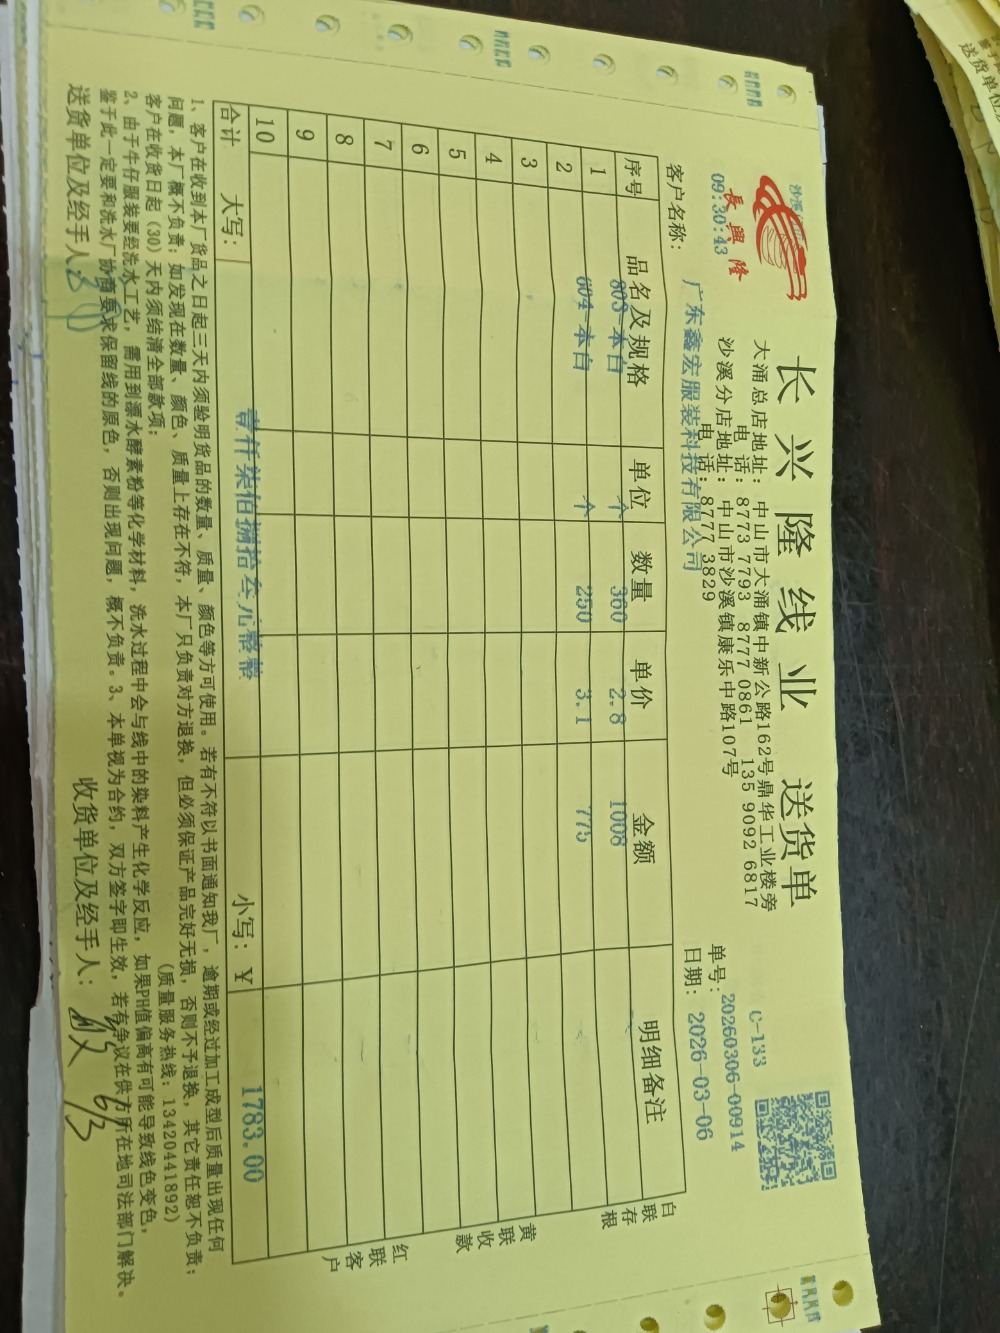 長興隆
09:30:43
长兴隆线业 送货单
大涌总店地址: 中山市大涌镇中新公路162号鼎华工业楼旁
电 话: 8773 7793 8777 0861 135 9092 6817
沙溪分店地址: 中山市沙溪镇康乐中路107号
电 话: 8777 3829
C-133
单号: 20260306-00914
客户名称: 广东鑫宏服装科技有限公司
日期: 2026-03-06
序号 品名及规格 单位 数量 单价 金额 明细备注
1 803-本白 个 360 2.8 1008
2 604-本白 个 250 3.1 775
3
4
5
6
7
8
9
10
合计 大写: 壹仟柒佰捌拾叁元整 小写: ¥ 1783.00
白联存根
黄联收款
红联客户
1、客户在收到本厂货品之日起三天内须验明货品的数量、质量、颜色等方可使用。若有不符以书面通知我厂, 逾期或经过加工成型后质量出现任何
问题, 本厂概不负责; 如发现在数量、颜色、质量上存在不符, 本厂只负责对方退换, 但必须保证产品完好无损, 否则不予退换, 其它责任恕不负责;
客户在收货日起 (30) 天内须结清全部款项; (质量服务热线: 13420441892)
2、由于牛仔服装要经洗水工艺, 需用到漂水酵素粉等化学材料, 洗水过程中会与线中的染料产生化学反应, 如果PH值偏高有可能导致线色变色,
鉴于此一定要和洗水厂协商要求保留线的原色, 否则出现问题, 概不负责。3、本单视为合约, 双方签字即生效, 若有争议在供方所在地司法部门解决。
送货单位及经手人:
收货单位及经手人: 6/3
送货单位及